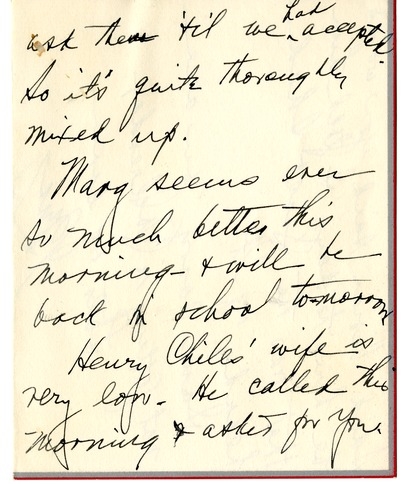 ask them 'til we had accepted.
So it's quite thoroughly
mixed up.
Marg seems ever
so much better this
morning - & will be
back in school tomorrow
Henry Chiles' wife is
very low - He called this
morning & asked for you.